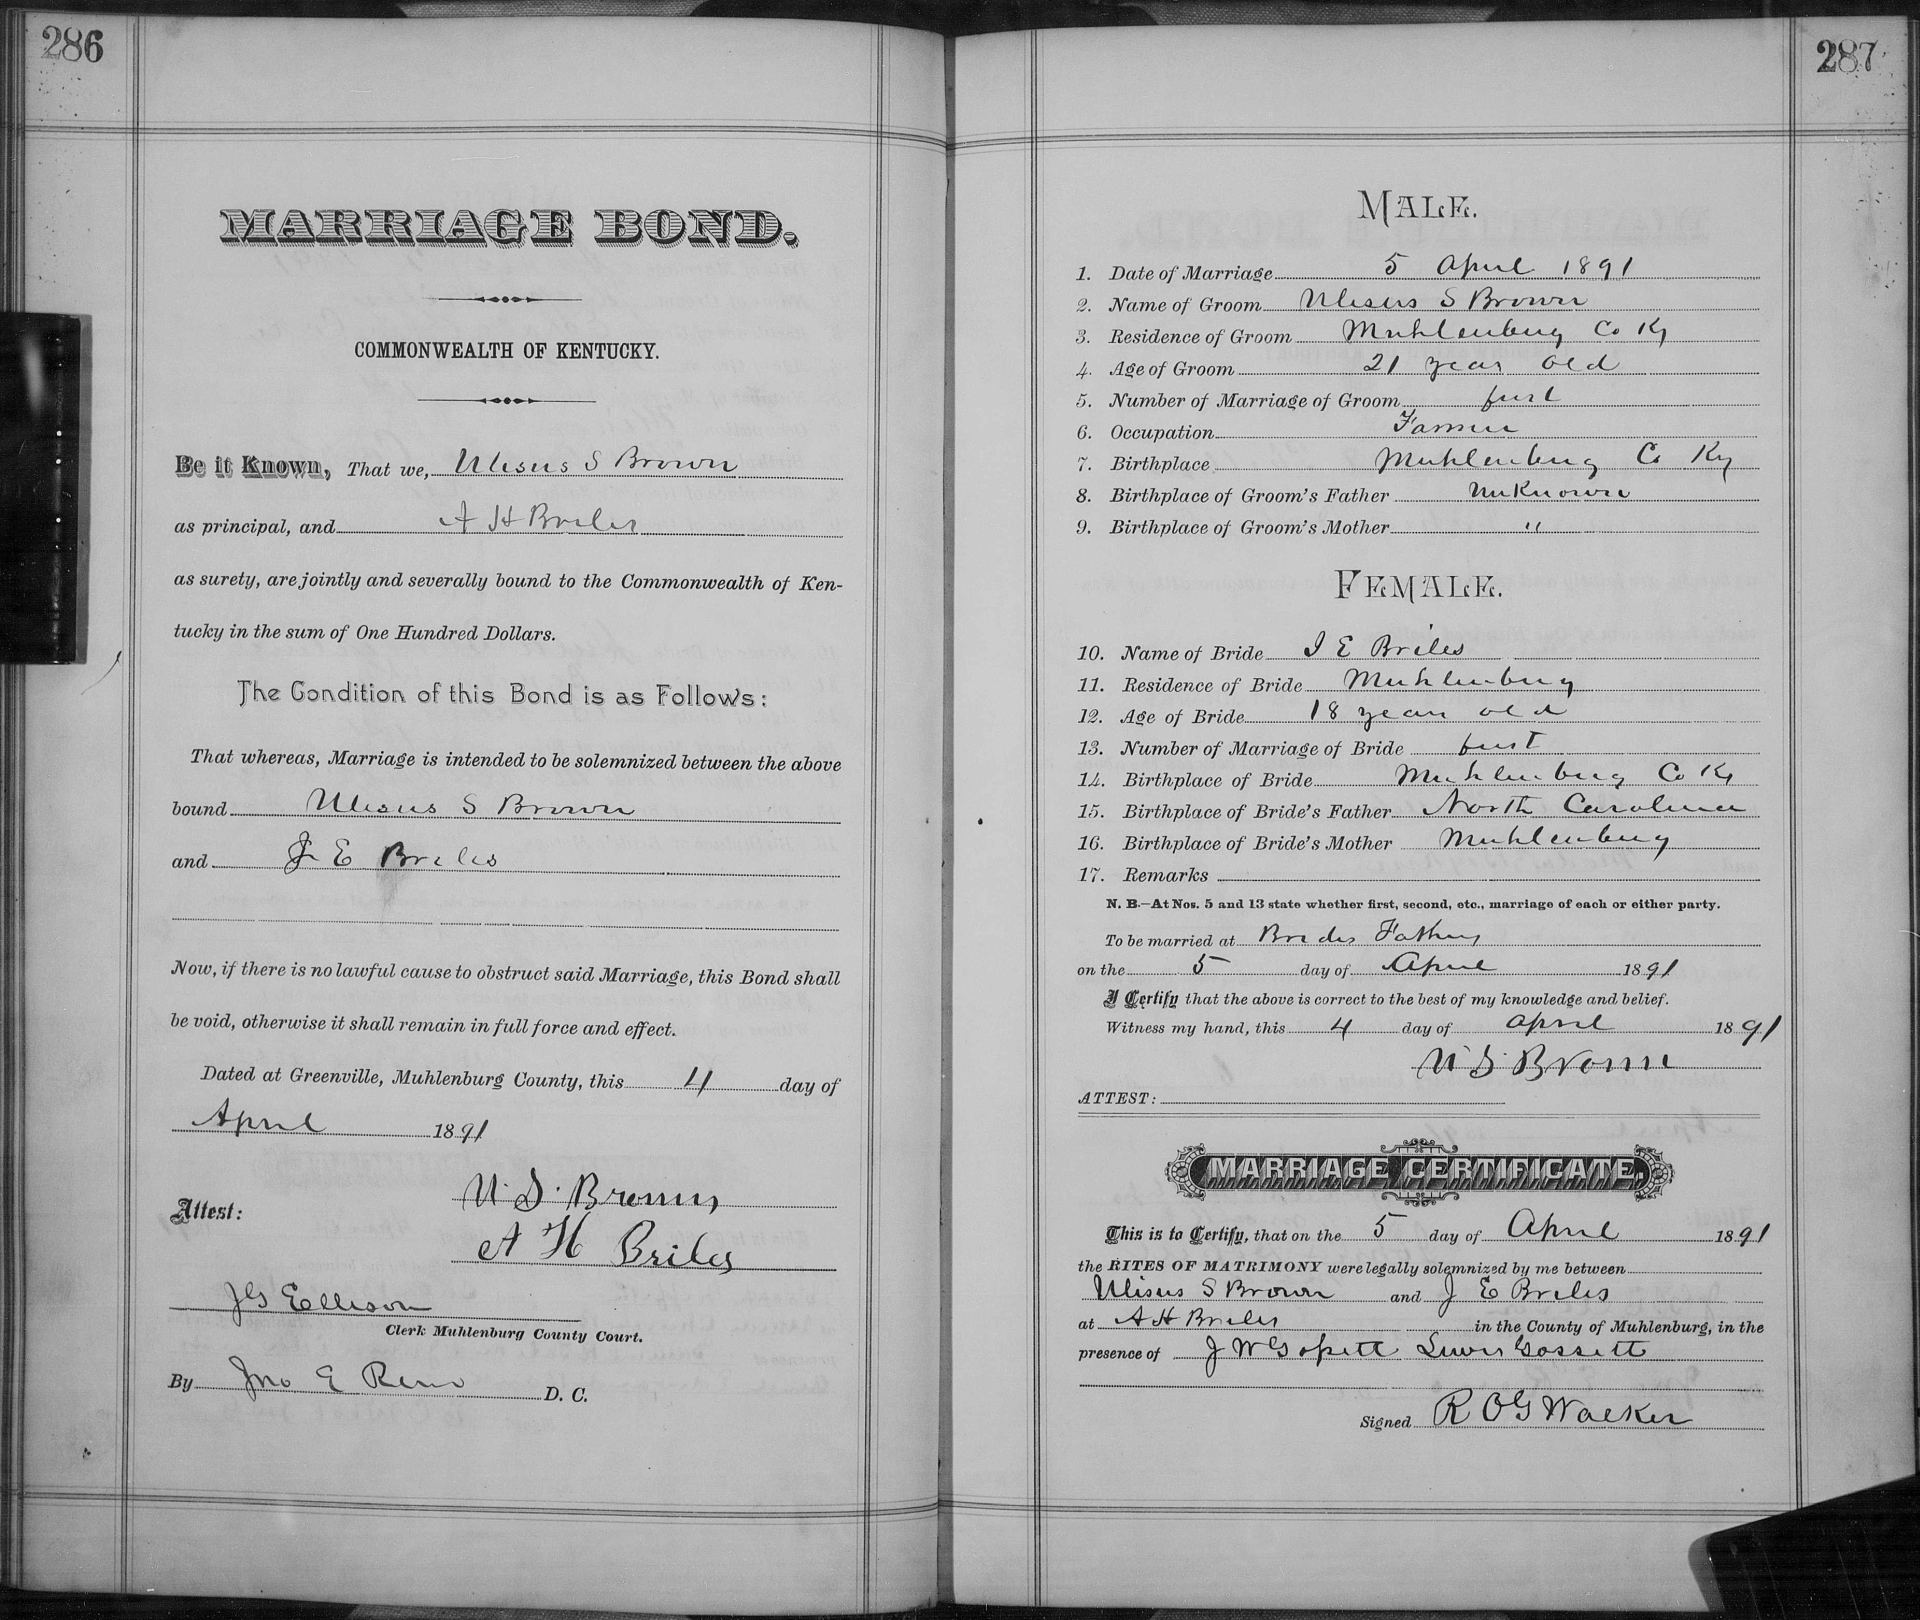 286
MARRIAGE BOND.
COMMONWEALTH OF KENTUCKY.
Be it Known, That we, Ulisus S Brown
as principal, and A H Briles
as surety, are jointly and severally bound to the Commonwealth of Ken-
tucky in the sum of One Hundred Dollars.
The Condition of this Bond is as Follows:
That whereas, Marriage is intended to be solemnized between the above
bound Ulisus S Brown
and J E Briles
Now, if there is no lawful cause to obstruct said Marriage, this Bond shall
be void, otherwise it shall remain in full force and effect.
Dated at Greenville, Muhlenburg County, this 4 day of
April 1891
Attest: U. S. Brown
A H Briles
J G Ellison
Clerk Muhlenburg County Court.
By Jno E Reno D. C.
287
MALE.
1. Date of Marriage 5 April 1891
2. Name of Groom Ulisus S Brown
3. Residence of Groom Muhlenburg Co Ky
4. Age of Groom 21 years old
5. Number of Marriage of Groom first
6. Occupation Farmer
7. Birthplace Muhlenburg Co Ky
8. Birthplace of Groom's Father Unknown
9. Birthplace of Groom's Mother "
FEMALE.
10. Name of Bride J E Briles
11. Residence of Bride Muhlenburg
12. Age of Bride 18 years old
13. Number of Marriage of Bride first
14. Birthplace of Bride Muhlenburg Co Ky
15. Birthplace of Bride's Father North Carolina
16. Birthplace of Bride's Mother Muhlenburg
17. Remarks
N. B.—At Nos. 5 and 13 state whether first, second, etc., marriage of each or either party.
To be married at Brides Fathers
on the 5 day of April 1891
I Certify that the above is correct to the best of my knowledge and belief.
Witness my hand, this 4 day of April 1891
U. S. Brown
ATTEST:
MARRIAGE CERTIFICATE.
This is to Certify, that on the 5 day of April 1891
the RITES OF MATRIMONY were legally solemnized by me between
Ulisus S Brown and J E Briles
at A H Briles in the County of Muhlenburg, in the
presence of J W Gossett Lewis Gossett
Signed R O G Walker